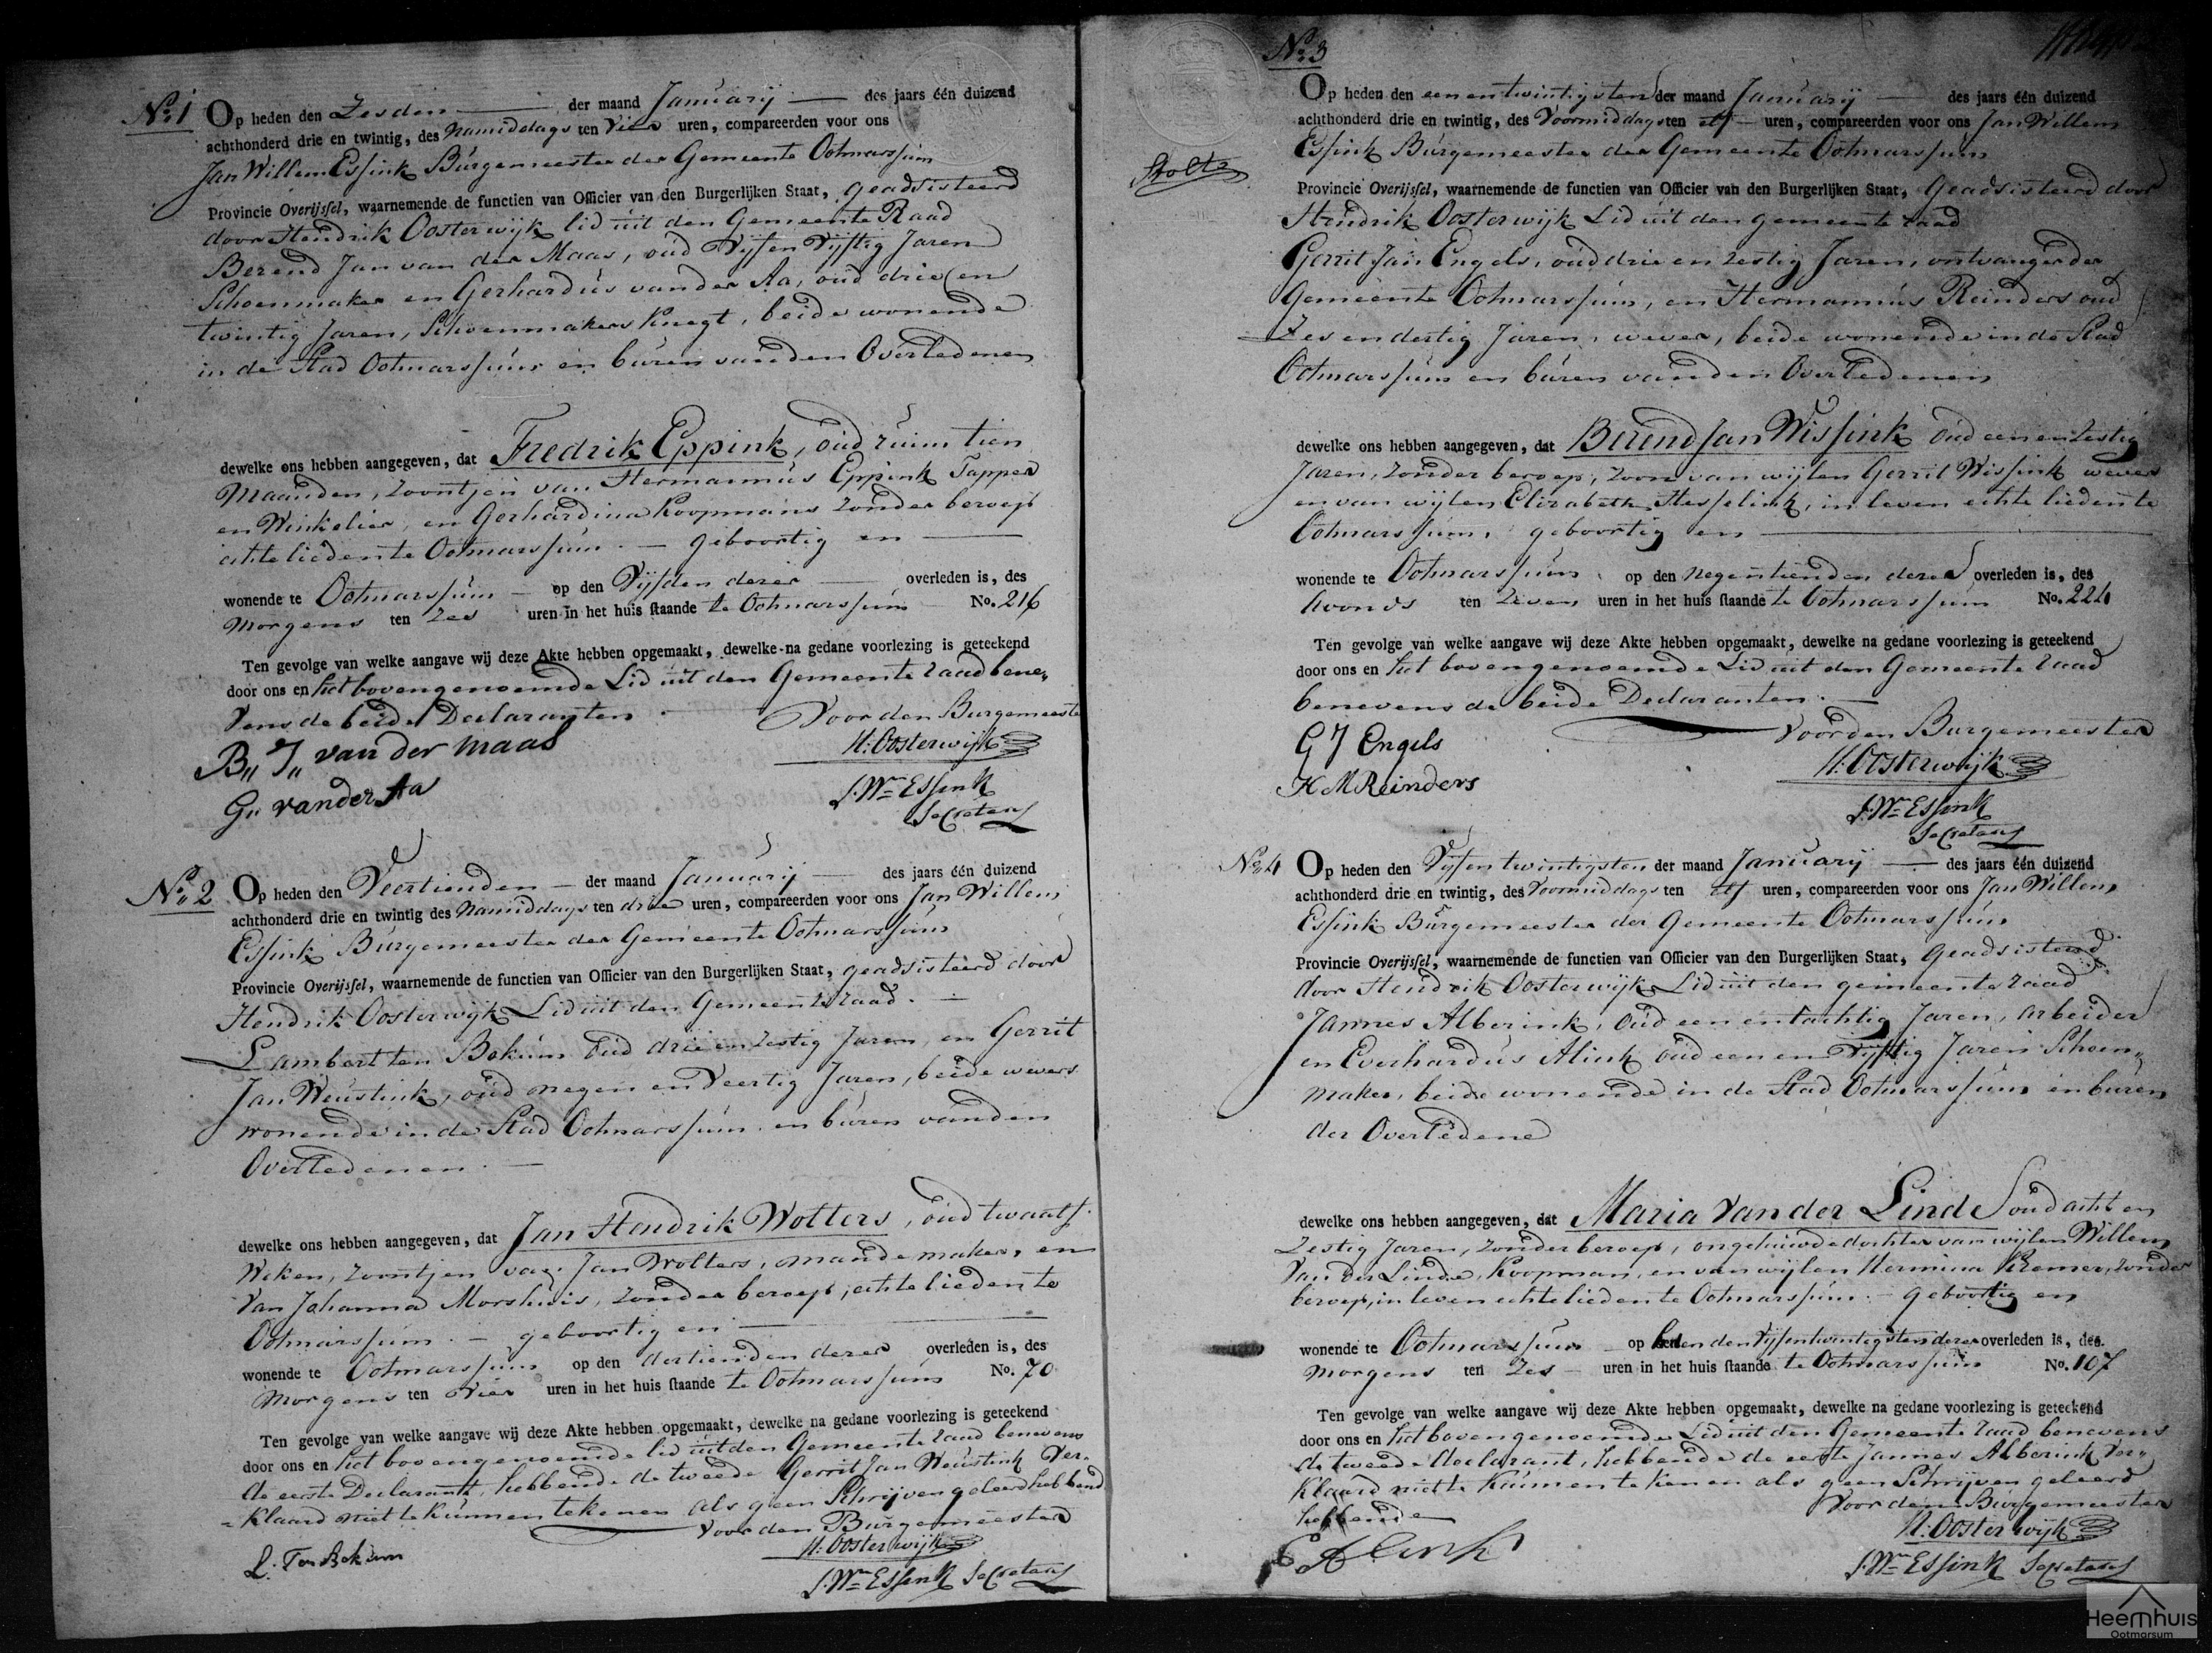 No. 1 Op heden den Zesden der maand Januarij des jaars één duizend
achthonderd drie en twintig, des Namiddags ten Vier uren, compareerden voor ons
Jan Willem Essink Burgemeester der Gemeente Ootmarssum
Provincie Overijssel, waarnemende de functien van Officier van den Burgerlijken Staat, geadsisteerd
door Hendrik Oosterwijk lid uit den Gemeente Raad
Berend Jan van der Maas, oud Vijf en Vijftig Jaren
Schoenmaker en Gerhardus van der Aa, oud drie en
twintig Jaren, Schoenmakers Knegt, beide wonende
in de Stad Ootmarssum en buren van den Overledenen
dewelke ons hebben aangegeven, dat Fredrik Eppink, oud ruim tien
Maanden, zoontjen van Hermannus Eppink Tapper
en Winkelier, en Gerhardina Koopmans zonder beroep
echtelieden te Ootmarssum. geboortig en
wonende te Ootmarssum op den Vijfden dezer overleden is, des
Morgens ten Zes uren in het huis staande te Ootmarssum No. 216
Ten gevolge van welke aangave wij deze Akte hebben opgemaakt, dewelke na gedane voorlezing is geteekend
door ons en het bovengenoemde Lid uit den Gemeente raad bene„
Vens de beide Declaranten
Voor den Burgemeester
B„ J„ van der maas
H: Oosterwijk
G„ van der Aa
J. Wm Essink
Secretaris
No. 2 Op heden den Veertienden der maand Januarij des jaars één duizend
achthonderd drie en twintig des Namiddags ten drie uren, compareerden voor ons Jan Willem
Essink Burgemeester der Gemeente Ootmarssum
Provincie Overijssel, waarnemende de functien van Officier van den Burgerlijken Staat, geadsisteerd door
Hendrik Oosterwijk Lid uit den Gemeente raad.
Lambert ten Bokum Oud drie en zestig Jaren, en Gerrit
Jan Weustink, oud negen en Veertig Jaren, beide wevers
wonende in de Stad Ootmarssum en buren van den
Overledenen.
dewelke ons hebben aangegeven, dat Jan Hendrik Wolters, oud twaalf
Weken, zoontjen van Jan Wolters, mandemaker, en
Van Johanna Morshuis, zonder beroep, echtelieden te
Ootmarssum. geboortig en
wonende te Ootmarssum op den dertienden dezer overleden is, des
Morgens ten Vier uren in het huis staande te Ootmarssum No. 70
Ten gevolge van welke aangave wij deze Akte hebben opgemaakt, dewelke na gedane voorlezing is geteekend
door ons en het bovengenoemde lid uit den Gemeente raad benevens
de eerste Declarant, hebbende de tweede Gerrit Jan Weustink Ver„
klaard niet te kunnen tekenen als geen Schrijven geleerd hebbend
Voor den Burgemeester
H: Oosterwijk
L: Ten Bokum
J. Wm Essink Secretaris
No. 3
Stolte
Op heden den een en twintigsten der maand Januarij des jaars één duizend
achthonderd drie en twintig, des Voormiddags ten elf uren, compareerden voor ons Jan Willem
Essink Burgemeester der Gemeente Ootmarssum
Provincie Overijssel, waarnemende de functien van Officier van den Burgerlijken Staat, Geadsisteerd door
Hendrik Oosterwijk Lid uit den gemeente raad
Gerrit Jan Engels, oud drie en zestig Jaren, ontvanger der
Gemeente Ootmarssum, en Hermannus Reinders oud
Zes en dertig Jaren, wever, beide wonende in de Stad
Ootmarssum en buren van den Overledenen
dewelke ons hebben aangegeven, dat Berend Jan Wissink Oud een en zestig
Jaren, zonder beroep, zoon van wijlen Gerrit Wissink wever
en van wijlen Elizabeth Hesselink, in leven echtelieden te
Ootmarssum, geboortig en
wonende te Ootmarssum op den negentienden dezer overleden is, des
Avonds ten Zeven uren in het huis staande te Ootmarssum No. 224
Ten gevolge van welke aangave wij deze Akte hebben opgemaakt, dewelke na gedane voorlezing is geteekend
door ons en het bovengenoemde Lid uit den Gemeente raad
benevens de beide Declaranten.
Voor den Burgemeester
G J Engels
H: Oosterwijk
H M Reinders
J. Wm Essink
Secretaris
No. 4 Op heden den Vijfentwintigsten der maand Januarij des jaars één duizend
achthonderd drie en twintig, des Voormiddags ten elf uren, compareerden voor ons Jan Willem
Essink Burgemeester der Gemeente Ootmarssum
Provincie Overijssel, waarnemende de functien van Officier van den Burgerlijken Staat, Geadsisteerd
door Hendrik Oosterwijk Lid uit den gemeente raad
Jannes Alberink, Oud een en tachtig Jaren, arbeider
en Everhardus Alink oud een en Vijftig Jaren Schoen„
maker, beide wonende in de Stad Ootmarssum en buren
der Overledene
dewelke ons hebben aangegeven, dat Maria Van der Linde oud acht en
Zestig Jaren, zonder beroep, ongehuwde dochter van wijlen Willem
Van der Linde, Koopman, en van wijlen Hermina Kremer, zonder
beroep, in leven echtelieden te Ootmarssum. geboortig en
wonende te Ootmarssum op heden den Vijfentwintigsten dezer overleden is, des
Morgens ten Zes uren in het huis staande te Ootmarssum No. 107
Ten gevolge van welke aangave wij deze Akte hebben opgemaakt, dewelke na gedane voorlezing is geteekend
door ons en het bovengenoemde Lid uit den Gemeente raad benevens
de tweede declarant, hebbende de eerste Jannes Alberink Ver„
klaard niet te kunnen tekenen als geen Schrijven geleerd
hebbende
Voor den Burgemeester
H: Oosterwijk
E Alink
J. Wm Essink Secretaris
Heemhuis
Ootmarsum